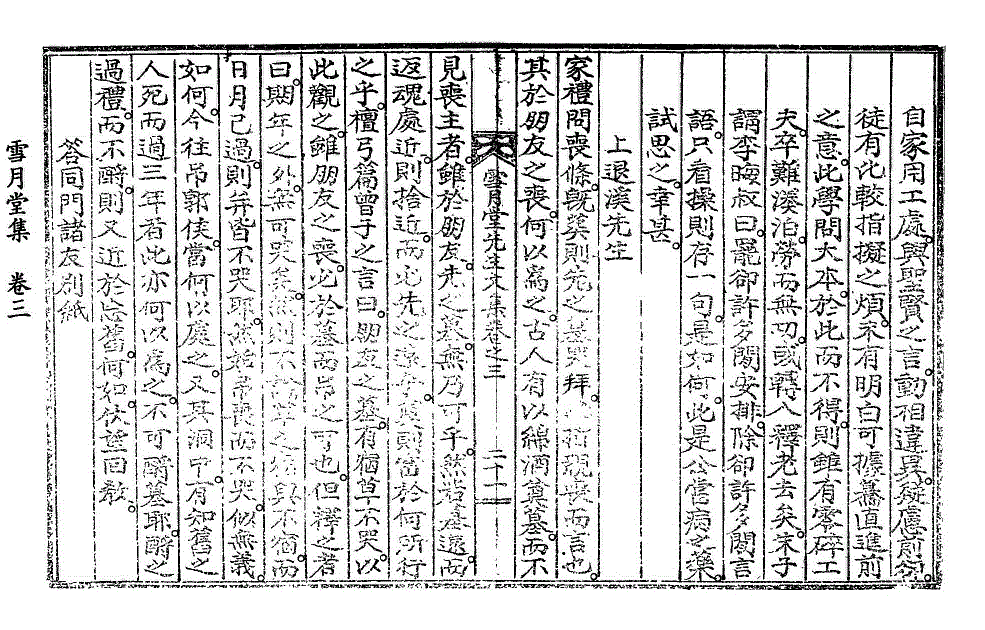 自家用工處。與聖賢之言。動相違異。疑慮前卻。
徒有比較指擬之煩。未有明白可據驀直進前
之意。此學問大本。於此而不得。則雖有零碎工
夫。卒難湊泊。勞而無功。或轉入釋老去矣。朱子
謂李晦叔曰。罷卻許多閑安排。除卻許多閑言
語。只看操則存一句。是如何。此是公當病之藥。
試思之。幸甚。
上退溪先生
家禮問喪條。旣奠則先之墓哭拜。此指親喪而言也。
其於朋友之喪。何以爲之。古人有以綿酒奠墓。而不
雪月堂先生文集卷之三 二十一
見喪主者。雖於朋友。先之墓。無乃可乎。然若墓遠。而
返魂處近。則捨近。而必先之深。則當於何所行
之乎。檀弓篇曾子之言曰。朋友之墓。有宿草不哭。以
此觀之。雖朋友之喪。必於墓而吊之可也。但釋之者
曰。期年之外。無可哭矣。然則不論草之宿與不宿。而
日月已過。則幷皆不哭耶。然始吊喪而不哭。似無義。
如何。今往吊郭侯。當何以處之。又其洞中。有知舊之
人死而過三年者。此亦何以爲之。不可酹墓耶。酹之
過禮。而不酹。則又近於忘舊。何如。伏望回敎。
答同門諸友別紙
雪月堂集 卷三